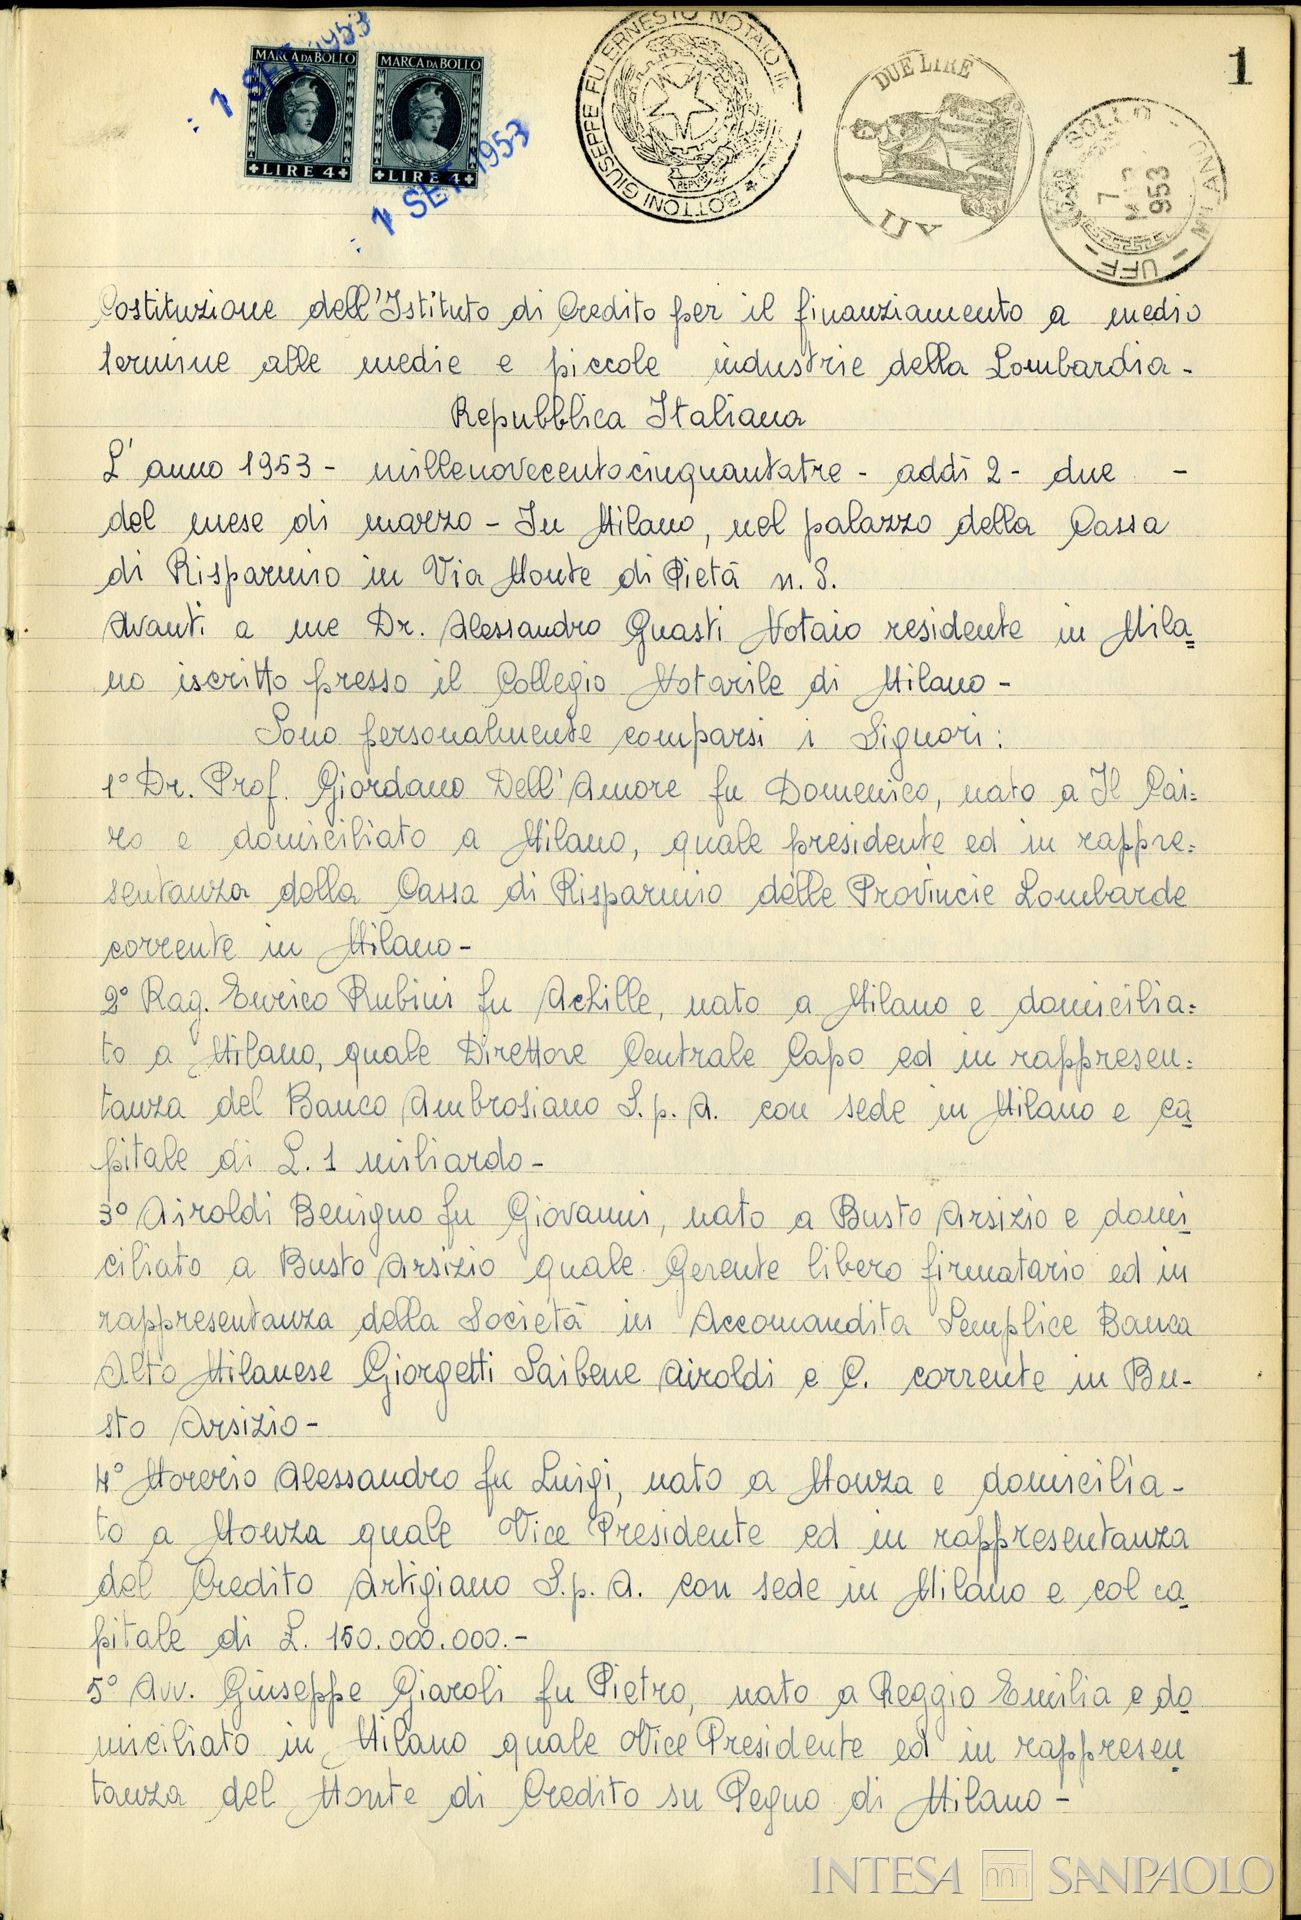 1 SET. 1953
MARCA DA BOLLO
LIRE 4
MARCA DA BOLLO
LIRE 4
1 SET. 1953
BOTTONI GIUSEPPE FU ERNESTO NOTAIO
DUE LIRE
BOLLO - MILANO - UFF
7
953
1
Costituzione dell'Istituto di Credito per il finanziamento a medio
termine alle medie e piccole industrie della Lombardia-
Repubblica Italiana
L'anno 1953 - millenovecentocinquantatre - addì 2 - due -
del mese di marzo - In Milano, nel palazzo della Cassa
di Risparmio in Via Monte di Pietà n. 8.
Avanti a me Dr. Alessandro Guasti Notaio residente in Mila=
no iscritto presso il Collegio Notarile di Milano -
Sono personalmente comparsi i Signori:
1° Dr. Prof. Giordano Dell'Amore fu Domenico, nato a Il Cai=
ro e domiciliato a Milano, quale presidente ed in rappre=
sentanza della Cassa di Risparmio delle Provincie Lombarde
corrente in Milano -
2° Rag. Enrico Rubini fu Achille, nato a Milano e domicilia=
to a Milano, quale Direttore Centrale Capo ed in rappresen=
tanza del Banco Ambrosiano S.p.A. con sede in Milano e ca_
pitale di L. 1 miliardo -
3° Airoldi Benigno fu Giovanni, nato a Busto Arsizio e domi_
ciliato a Busto Arsizio quale Gerente libero firmatario ed in
rappresentanza della Società in Accomandita Semplice Banca
Alto Milanese Giorgetti Saibene Airoldi e C. corrente in Bu-
sto Arsizio -
4° Morerio Alessandro fu Luigi, nato a Monza e domicilia-
to a Monza quale Vice Presidente ed in rappresentanza
del Credito Artigiano S.p.A. con sede in Milano e col ca_
pitale di L. 150.000.000.-
5° Avv. Giuseppe Giaroli fu Pietro, nato a Reggio Emilia e do_
miciliato in Milano quale Vice Presidente ed in rappresen_
tanza del Monte di Credito su Pegno di Milano -
INTESA SANPAOLO